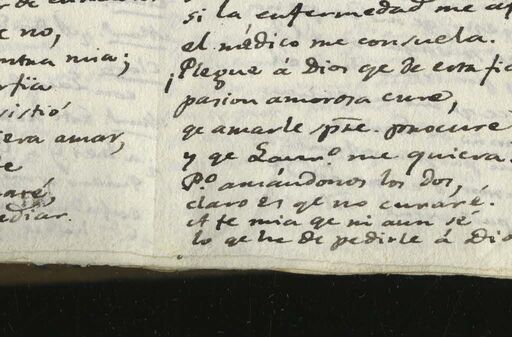 no,
contra mia;
porfia
sistió
era amar,
ediar.
si la enfermedad me
el médico me consuela.
¡Plegue á Dios qe de esta
pasion amorosa cure,
qe amarle spre. procuré
y qe me quiera.
Po. amándonos los dos,
claro es qe no curaré.
A fe mia qe ni aun sé
lo qe he de pedirle á Dio